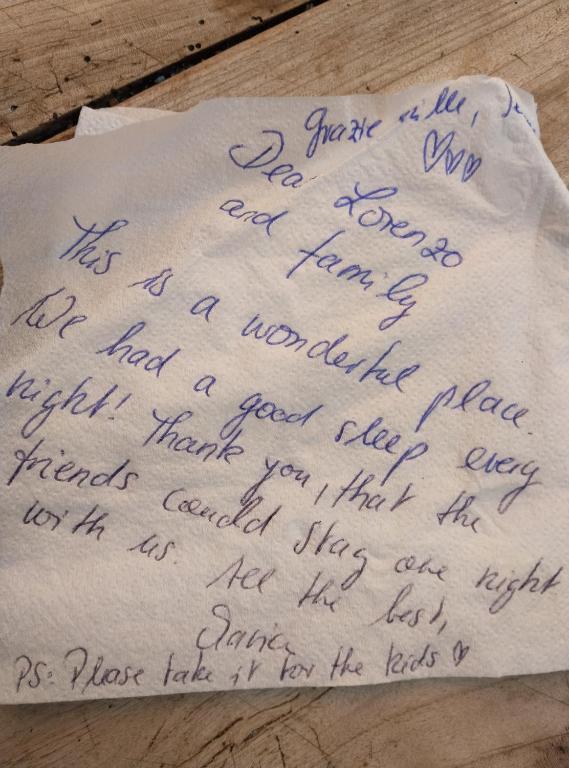 Grazie mille,
Dear Lorenzo
and family
This is a wonderful place.
We had a good sleep every
night! Thank you, that the
friends could stay one night
with us. All the best,
PS: Please take it for the kids ♡